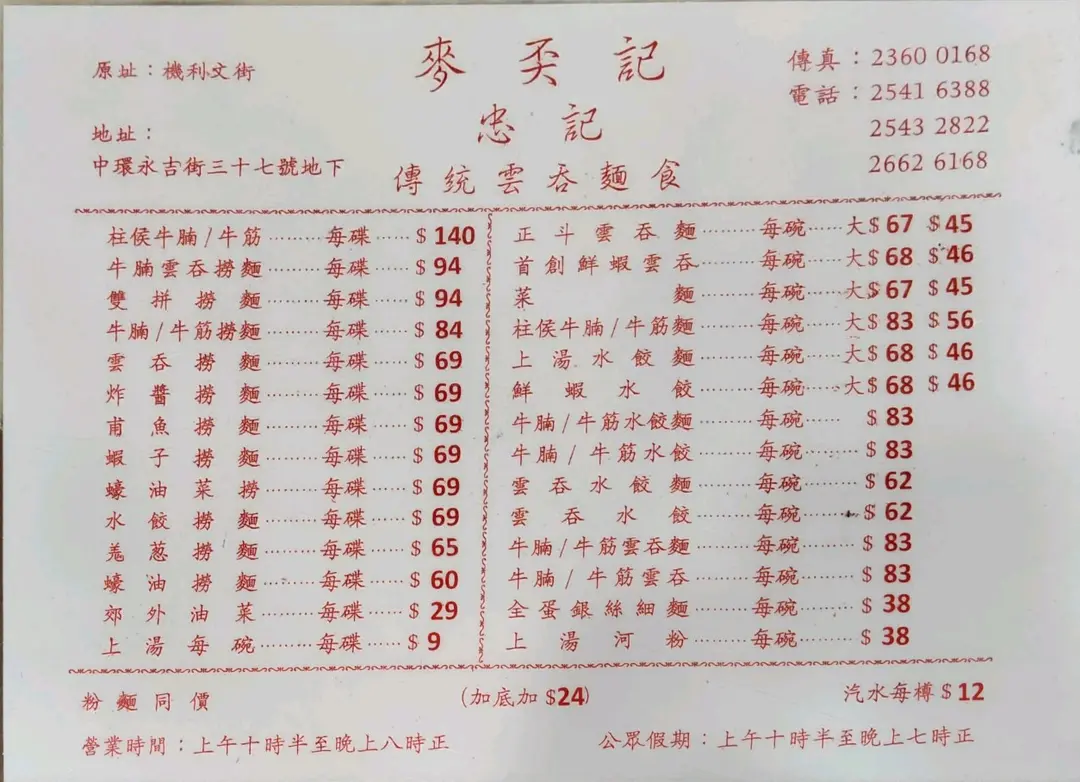 麥奀記
忠記
傳統雲吞麵食
原址：機利文街
地址：
中環永吉街三十七號地下
傳真：2360 0168
電話：2541 6388
2543 2822
2662 6168
柱侯牛腩/牛筋………每碟……$ 140
牛腩雲吞撈麵………每碟……$ 94
雙拼撈麵………每碟……$ 94
牛腩/牛筋撈麵………每碟……$ 84
雲吞撈麵………每碟……$ 69
炸醬撈麵………每碟……$ 69
甫魚撈麵………每碟……$ 69
蝦子撈麵………每碟……$ 69
蠔油菜撈………每碟……$ 69
水餃撈麵………每碟……$ 69
羗葱撈麵………每碟……$ 65
蠔油撈麵………每碟……$ 60
郊外油菜………每碟……$ 29
上湯每碗………每碟……$ 9
正斗雲吞麵………每碗……大$ 67 $ 45
首創鮮蝦雲吞………每碗……大$ 68 $ 46
菜麵………每碗……大$ 67 $ 45
柱侯牛腩/牛筋麵………每碗……大$ 83 $ 56
上湯水餃麵………每碗……大$ 68 $ 46
鮮蝦水餃………每碗……大$ 68 $ 46
牛腩/牛筋水餃麵………每碗……$ 83
牛腩/牛筋水餃………每碗………$ 83
雲吞水餃麵………每碗………$ 62
雲吞水餃………每碗………$ 62
牛腩/牛筋雲吞麵………每碗………$ 83
牛腩/牛筋雲吞………每碗………$ 83
全蛋銀絲細麵………每碗………$ 38
上湯河粉………每碗………$ 38
粉麵同價
(加底加 $24)
汽水每樽 $ 12
營業時間：上午十時半至晚上八時正
公眾假期：上午十時半至晚上七時正